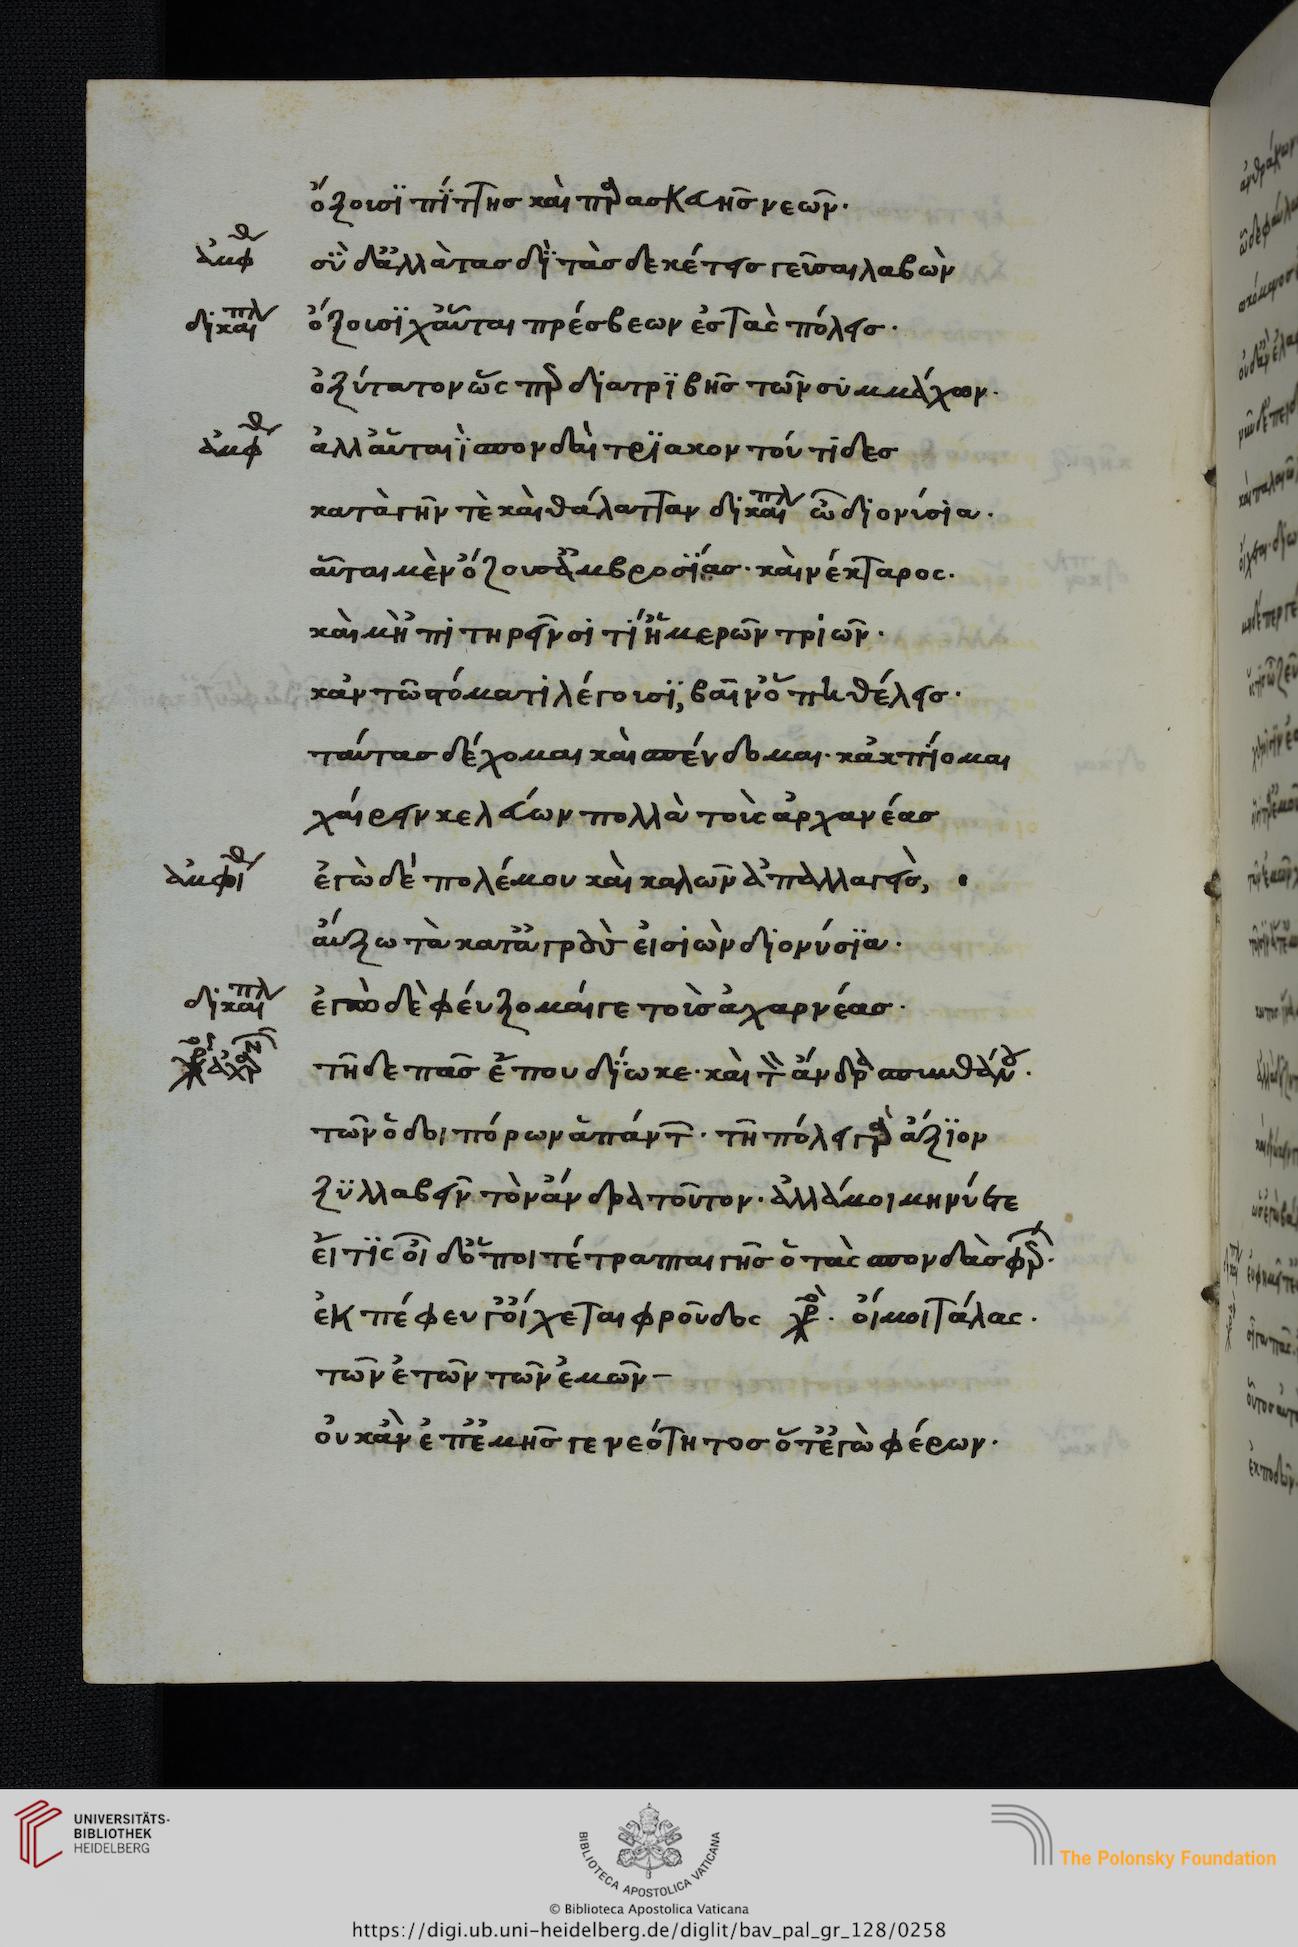 ὄζουσϊ πίττης καὶ παρασκευῆς νεῶν·
ἀμφθ σὺ δ᾽ ἀλλὰ τασδὶ τὰς δεκέτεις γεῦσαι λαβὼν
δικαιπλ ὄζουσϊ χ᾽ αὗται πρέσβεων ἐς τὰς πόλεις·
ὀξύτατον ὥς περ διατριβῆς τῶν συμμάχων·
ἀμφθ ἀλλ᾽ αὗταιῒ σπονδαὶ τριακοντούτιδες
κατὰ γῆν τὲ καὶ θάλατταν δικαιπλ ὦ διονύσια·
αὗται μὲν ὄζουσ᾽ ἀμβροσίας· καὶ νέκταρος·
καὶ μὴ ᾽πιτηρεῖν σιτί᾽ ἡμερῶν τριῶν·
κἀν τῶ στόματι λέγουσϊ, βαῖν᾽ ὅπη θέλεις·
ταύτας δέχομαι καὶ σπένδομαι· κἀκπίομαι
χαίρειν κελεύων πολλὰ τοὺς ἀρχανέας
ἀμφιθ ἐγὼ δὲ πολέμου καὶ καλῶν ἀπαλλαγεὶς,
ἄυξω τὰ κατ᾽ ἀγροὺς εἰσιὼν διονύσϊα·
δικαιπλ ἐγὼ δὲ φεύξομαί γε τοὺς ἀχαρνέας·
χορ ἀχαρν τῆδε πᾶς ἕπου δίωκε· καὶ τὸν ἄνδρα πυνθάνου·
τῶν ὁδοιπόρων ἁπάντων· τῆ πόλει γὰρ ἄξϊον
ξϋλλαβεῖν τὸν ἄνδρα τοῦτον· ἀλλά μοι μηνύσατε
εἴ τϊς οἶδ᾽ ὅποι τέτραπται γῆς ὁ τὰς σπονδὰς φέρων·
ἐκπέφευγ᾽ οἴχεται φροῦδος χορ· οἴμοι τάλας·
τῶν ἐτῶν τῶν ἐμῶν–
οὐκ ἂν ἐπ᾽ ἐμῆς γε νεότητος ὅτ᾽ ἐγὼ φέρων·
UNIVERSITÄTS-
BIBLIOTHEK
HEIDELBERG
BIBLIOTECA APOSTOLICA VATICANA
The Polonsky Foundation
© Biblioteca Apostolica Vaticana
https://digi.ub.uni-heidelberg.de/diglit/bav_pal_gr_128/0258